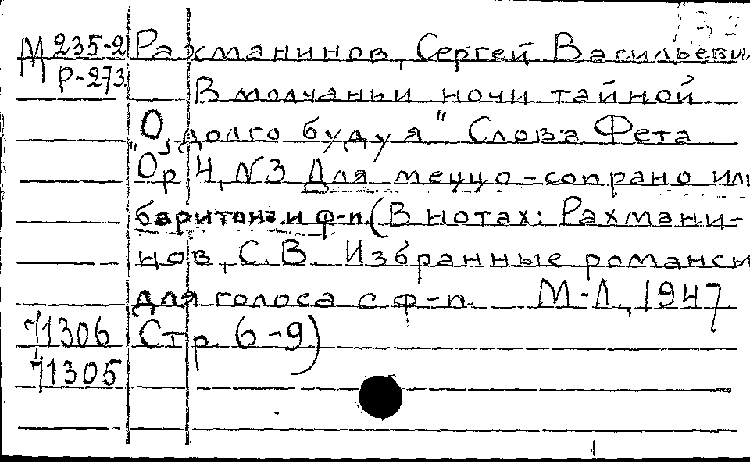 М 235-2 Рахманинов, Сергей Васильеви
Р-273 В молчаньи ночи тайной
"О, долго буду я" Слова Фета
Op 4, N3 Для меццо-сопрано или
баритона и ф-п. (В нотах: Рахмани-
нов, С.В. Избранные романсы
для голоса с ф-п. М-Л, 1947
71306 Стр. 6-9)
71305